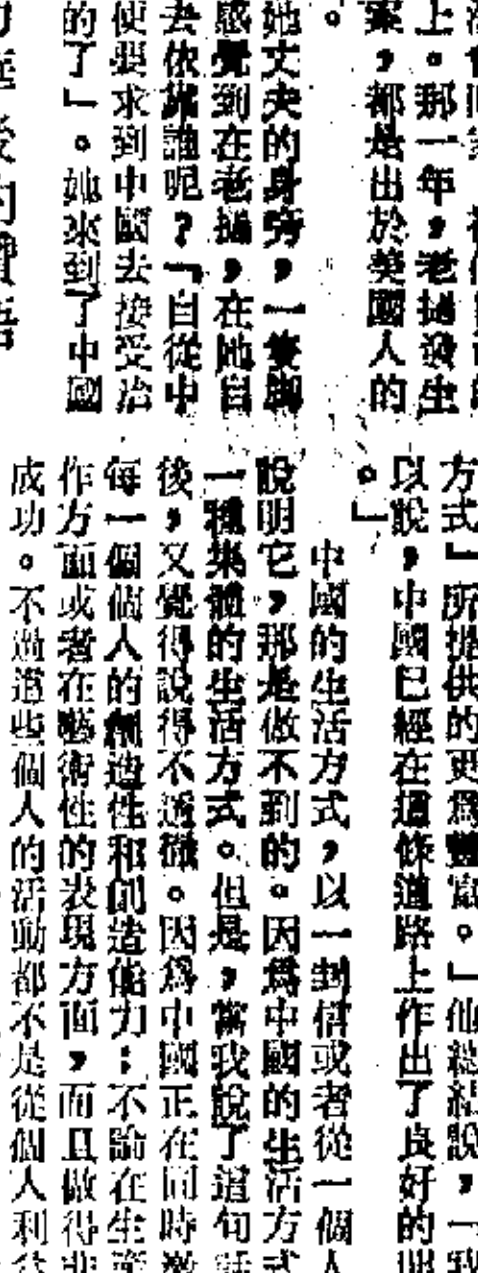 上。那一年,老撾發生
案,都是出於美國人的
。
她丈夫的身旁,一隻脚
感覺到在老撾,在她自
去依靠誰呢?「自從中
便要求到中國去接受治
的了」。她來到了中國
方式」所提供的更爲豐富。」他總結說,
以說,中國已經在這條道路上作出了良好的
。」
中國的生活方式,以一封信或者從一個人
說明它,那是做不到的。因爲中國的生活方式
一種集體的生活方式。但是,當我說了這句話
後,又覺得說得不透徹。因爲中國正在同時激
每一個個人的創造性和創造能力;不論在生產
作方面或者在藝術性的表現方面,而且做得非
成功。不過這些個人的活動都不是從個人利益